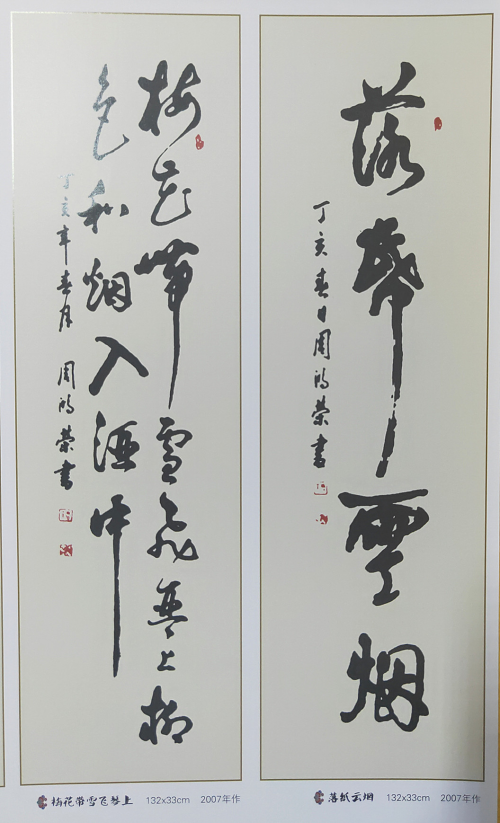 落帋雲烟
丁亥春日周鸿荣書
梅花帶雪飛琴上柳
色和烟入酒中
丁亥年春月 周鸿荣書
梅花带雪飞琴上 132x33cm 2007年作
落纸云烟 132x33cm 2007年作